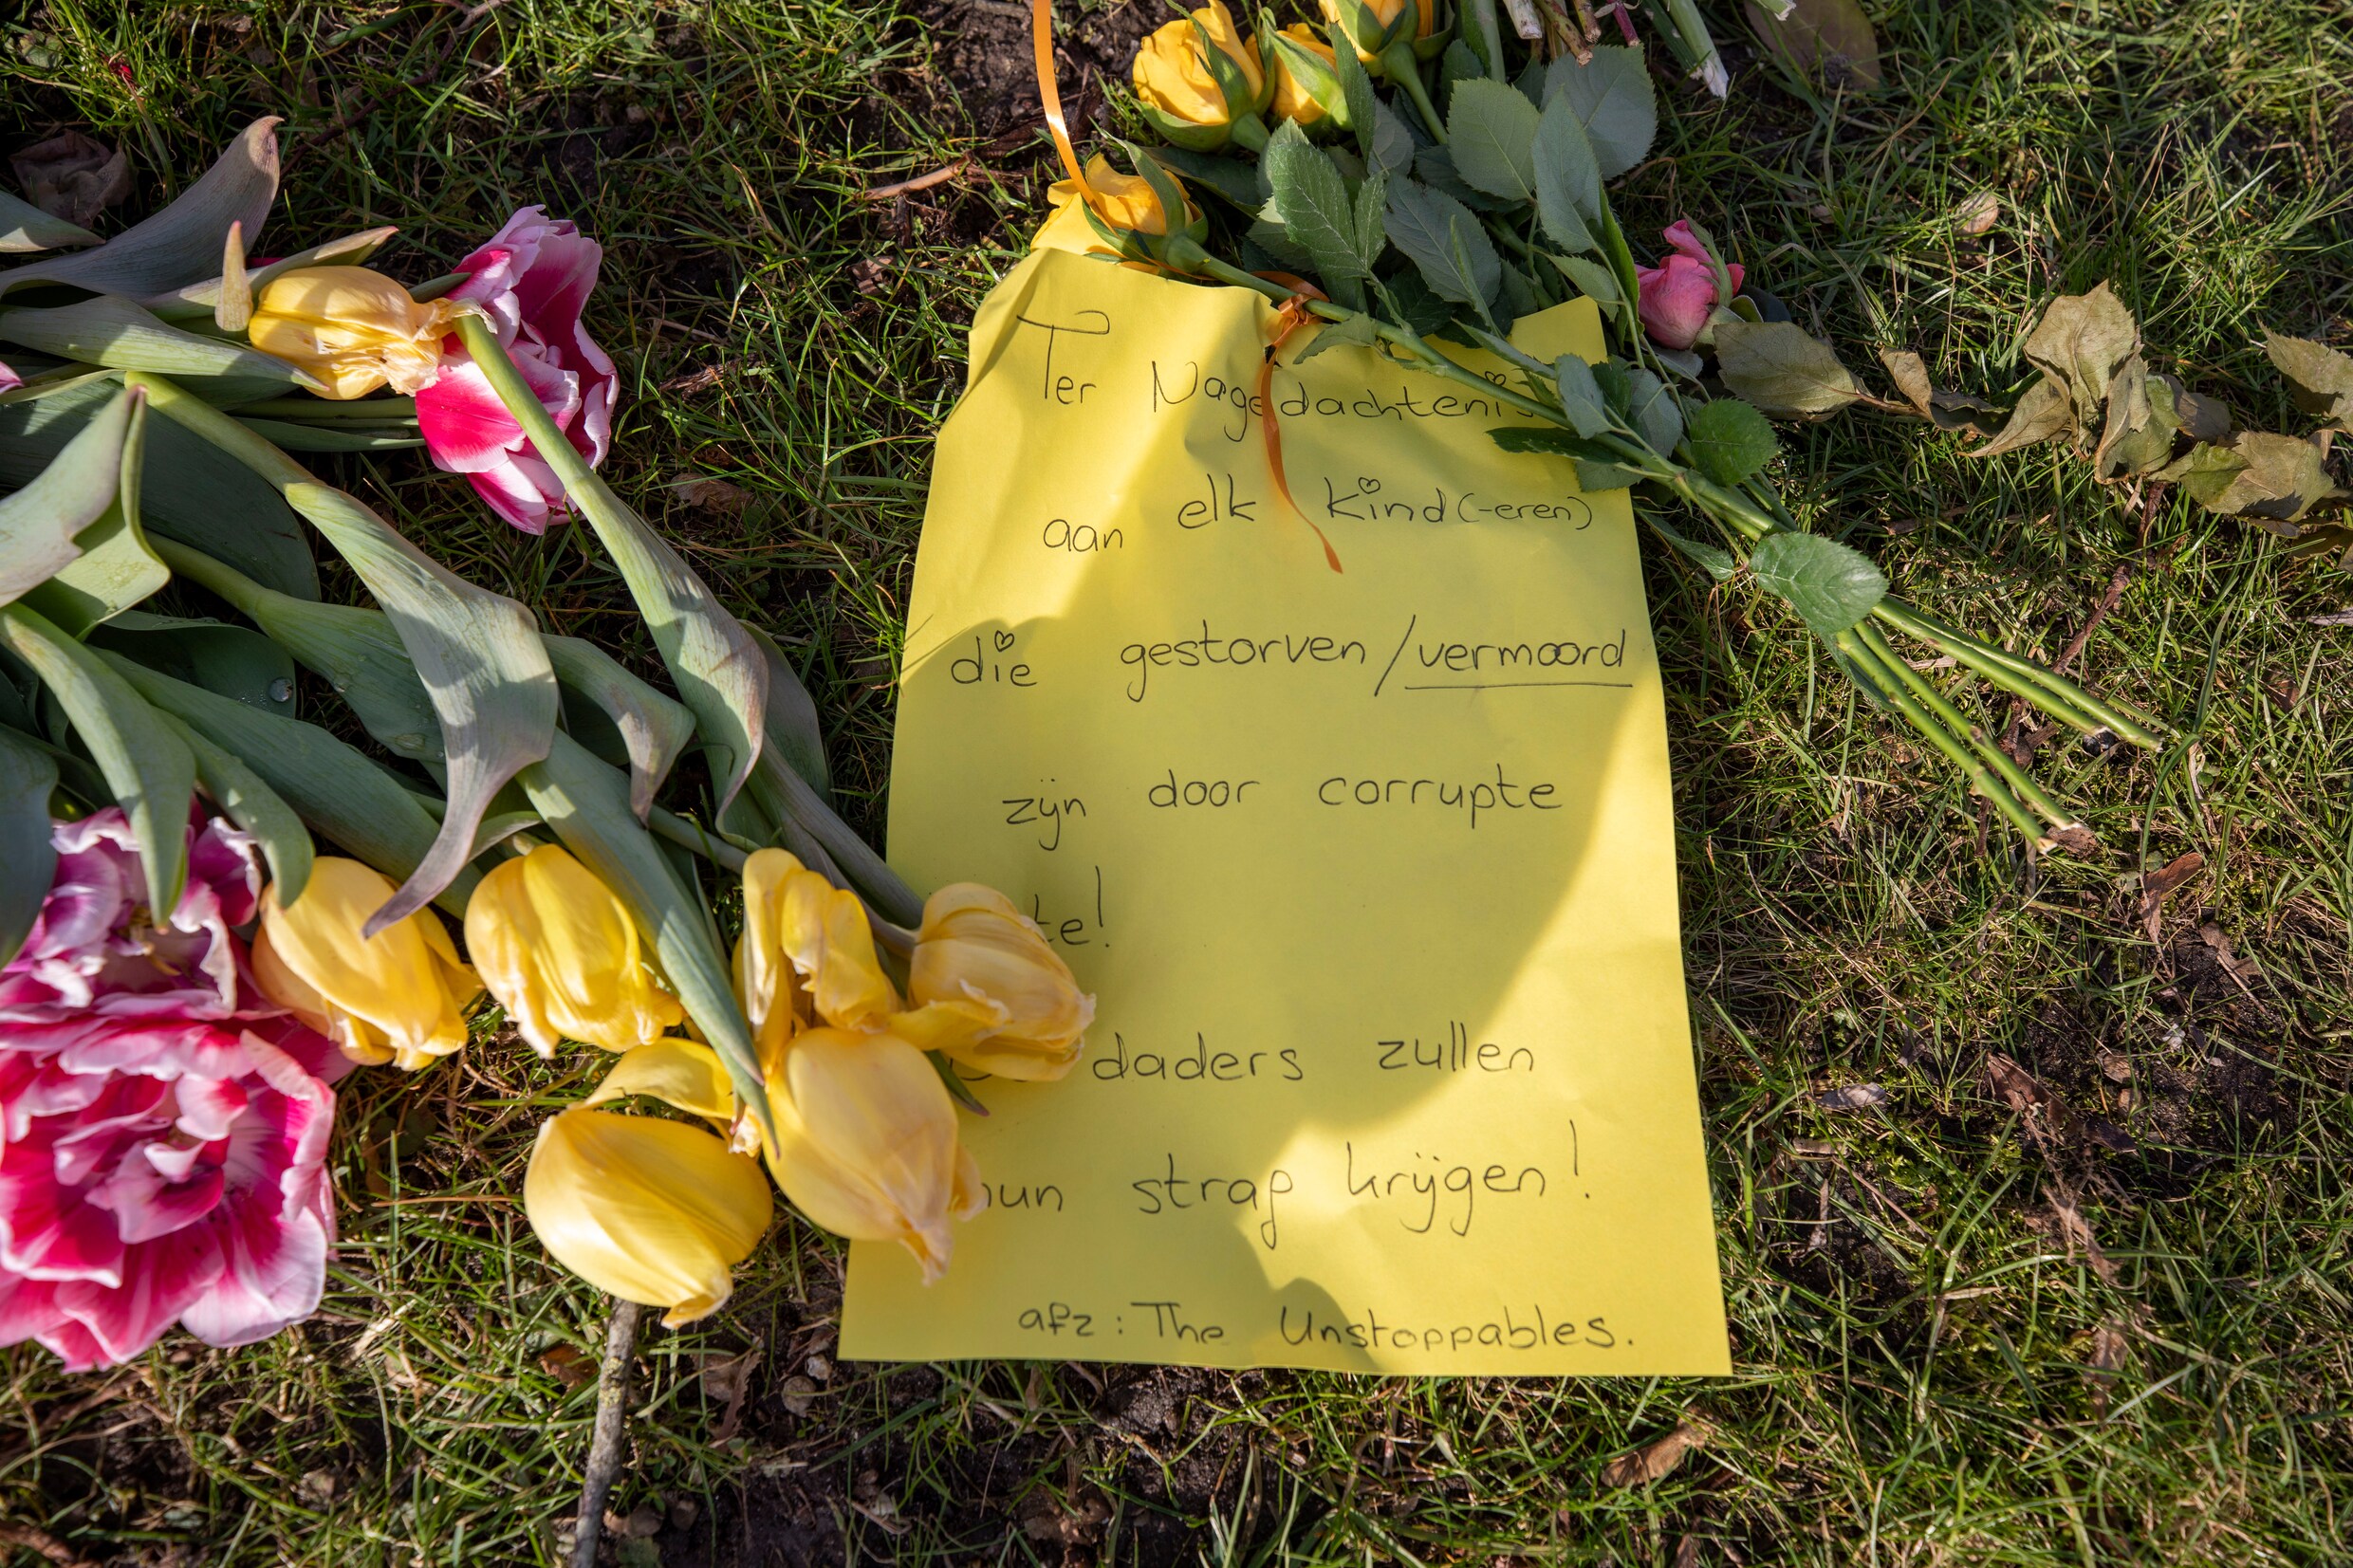 Ter Nagedachtenis
aan elk kind(-eren)
die gestorven/vermoord
zijn door corrupte
te!
daders zullen
hun straf krijgen!
afz: The Unstoppables.